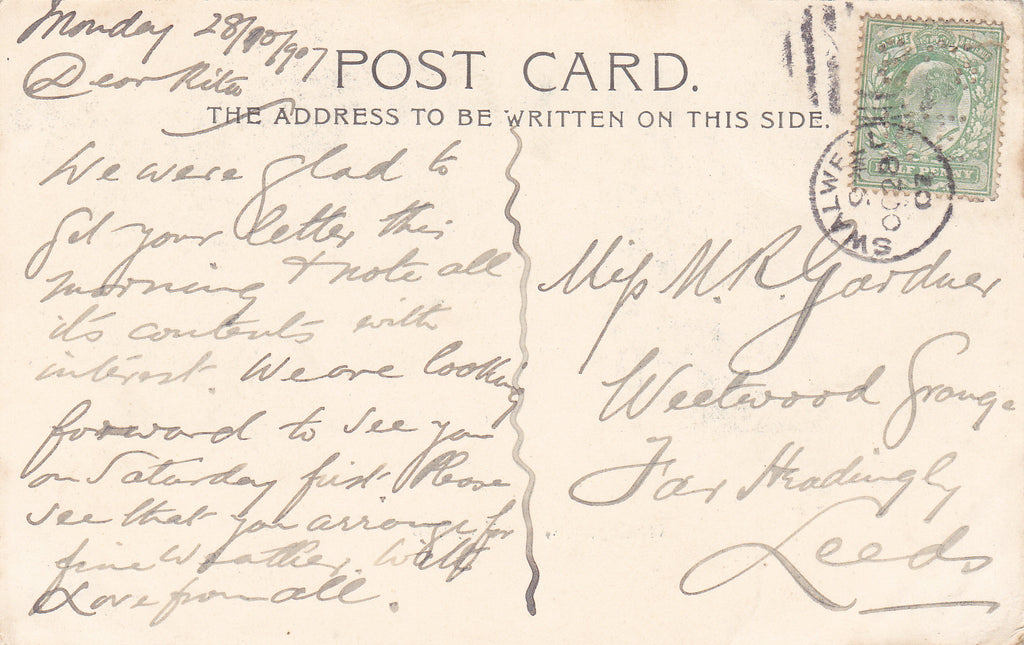 Monday 28/10/907
Dear Rita
POST CARD.
THE ADDRESS TO BE WRITTEN ON THIS SIDE.
We were glad to
get your letter this
morning & note all
it's contents with
interest. We are looking
forward to see you
on Saturday first. Please
see that you arrange for
fine weather. With
Love from all.
Miss M. R. Gardner
Weetwood Grange
Far Headingly
Leeds
SWALWE
OC 28
07
HALF PENNY